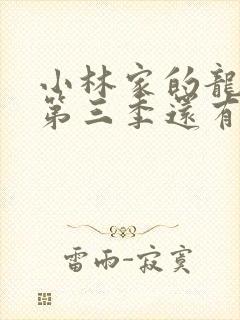 小林家的龍
第三季還有
雷雨-寂寞